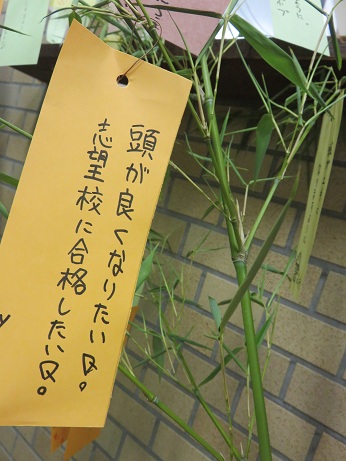 頭が良くなりたい🙏。
志望校に合格したい🙏。